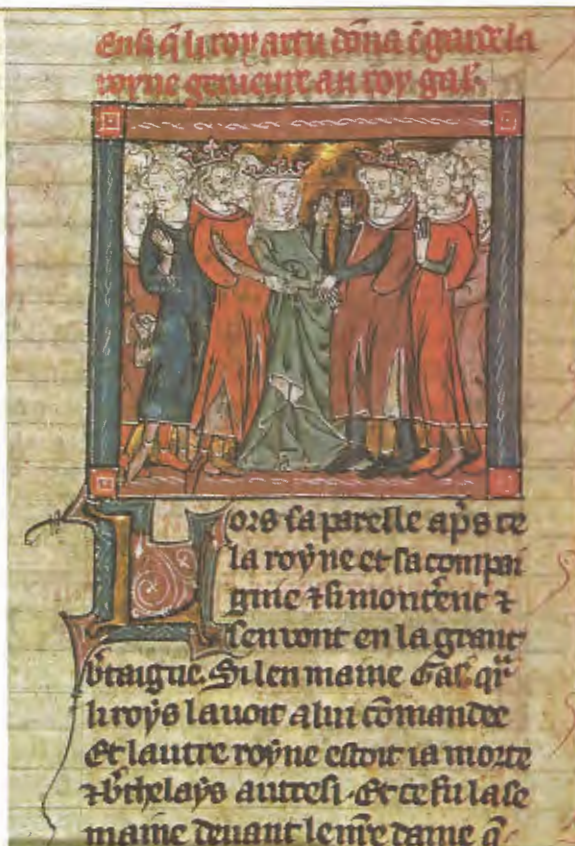 Ensi q̄ li roy artu dōna ē garde la
royne genieure au roy gal.
Lors sa parelle ap̄s ce
la roÿne et sa compai
gnie ⁊ si montent ⁊
sen vont en la grant
b̄taigne. Si len maine Gal. qr̄
li roÿs lauoit a lui cōmandee
Et lautre roÿne estoit ia morte
⁊ b̄thelaÿs autresi. Et ce fu la se
maine deuant lent̄e dame q̄